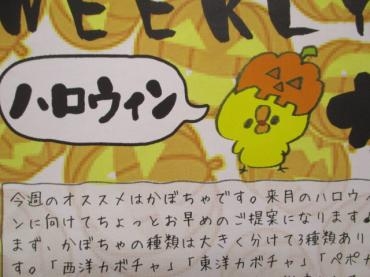 WEEKLY
ハロウィン
今週のオススメはかぼちゃです。来月のハロウィ
ンに向けてちょっとお早めのご提案になります♪
まず、かぼちゃの種類は大きく分けて3種類あり
す。「西洋カボチャ」「東洋カボチャ」「ペポカ